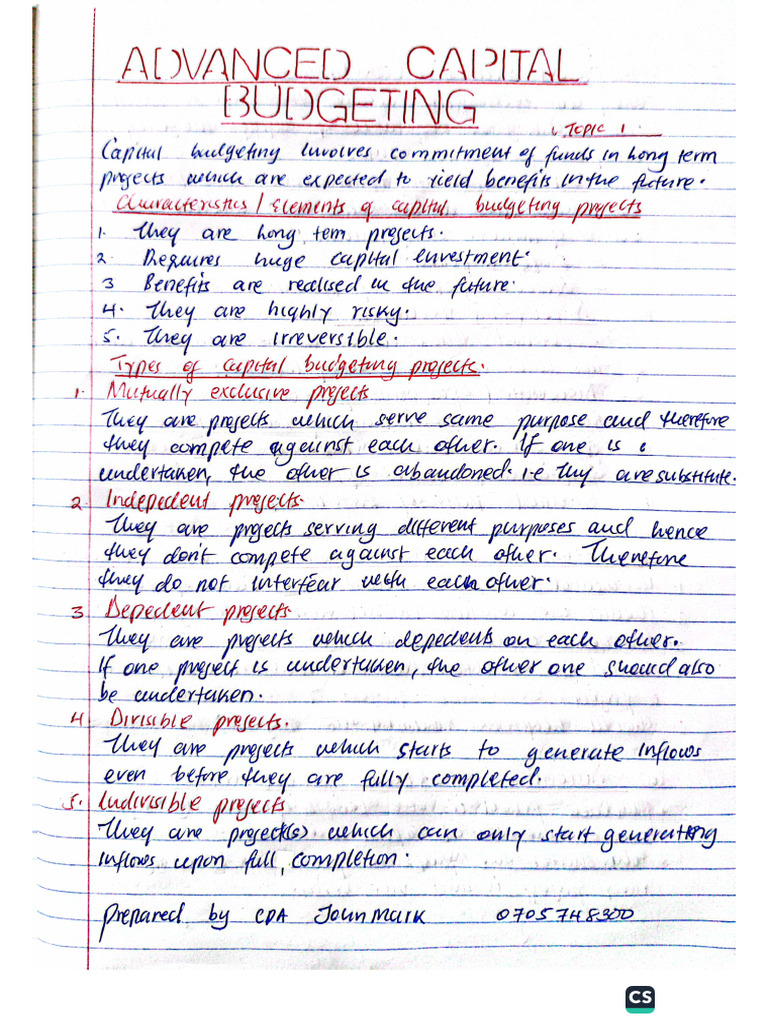 ADVANCED CAPITAL
BUDGETING
TOPIC 1
Capital budgeting involves commitment of funds in long term
projects which are expected to yield benefits in the future.
Characteristics / Elements of capital budgeting projects
1. They are long tem projects.
2. Requires huge capital investment.
3 Benefits are realised in the future.
4. They are highly risky.
5. They are irreversible.
Types of capital budgeting projects.
1. Mutually exclusive projects
They are projects which serve same purpose and therefore
they compete against each other. If one is
undertaken, the other is abandoned. i.e they are substitute.
2. Indepedent projects.
They are projects serving different purposes and hence
they don't compete against each other. Therefore
they do not interfear with each other.
3. Depedent projects
They are projects which depedents on each other.
If one project is undertaken, the other one should also
be undertaken.
4 Divisible projects.
They are projects which starts to generate inflows
even before they are fully completed.
5. Indivisible projects
They are project(s) which can only start generating
inflows upon full completion.
Prepared by CPA John Mark 0705748300
CS